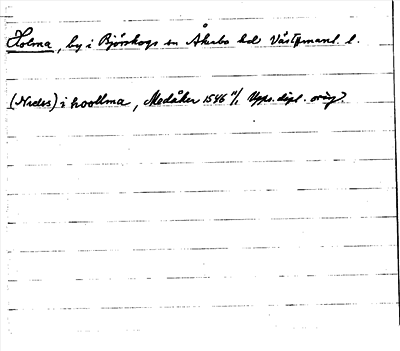 Holma, by i Björskogs sn Åkerbo hd Västmanl l.
(Nedss) i hoollma, Medåker 1546 11/1 Upps. dipl. orig?